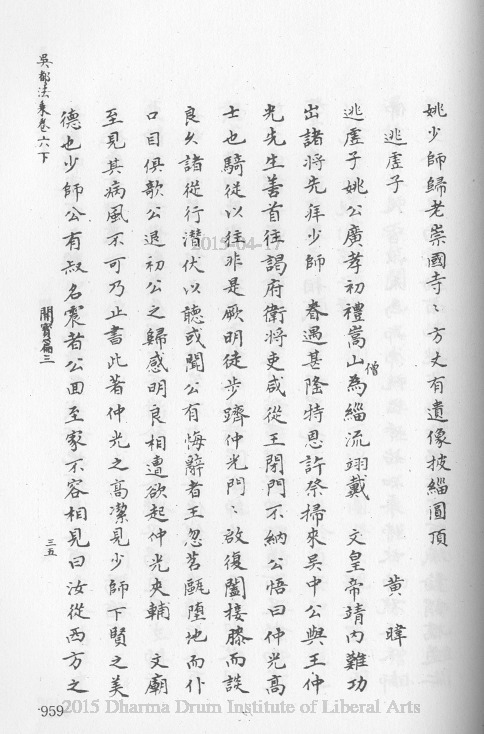 姚少師歸老崇國寺〻方丈有遺像披緇圓頂
逃虛子 黃暐
逃虛子姚公廣孝初禮嵩山僧為緇流翊戴 文皇帝靖內難功
出諸將先拜少師 眷遇甚隆特恩許祭掃來吳中公與王仲
光先生善首往謁府衛將吏咸從王閉門不納公悟曰仲光高
士也騎從以往非是厥明徒步躋仲光門〻啟復闔接膝而談
良久諸從行潛伏以聽或聞公有悔辭者王忽茗甌墮地而仆
口目俱欹公退初公之歸感明良相遭欲起仲光夾輔 文廟
至見其病風不可乃止書此著仲光之高潔見少師下賢之美
德也少師公有叔名震者公回至家不容相見曰汝從西方之
吳都法乘卷六下
開寶篇三
三五
959
2015-04-17
2015 Dharma Drum Institute of Liberal Arts